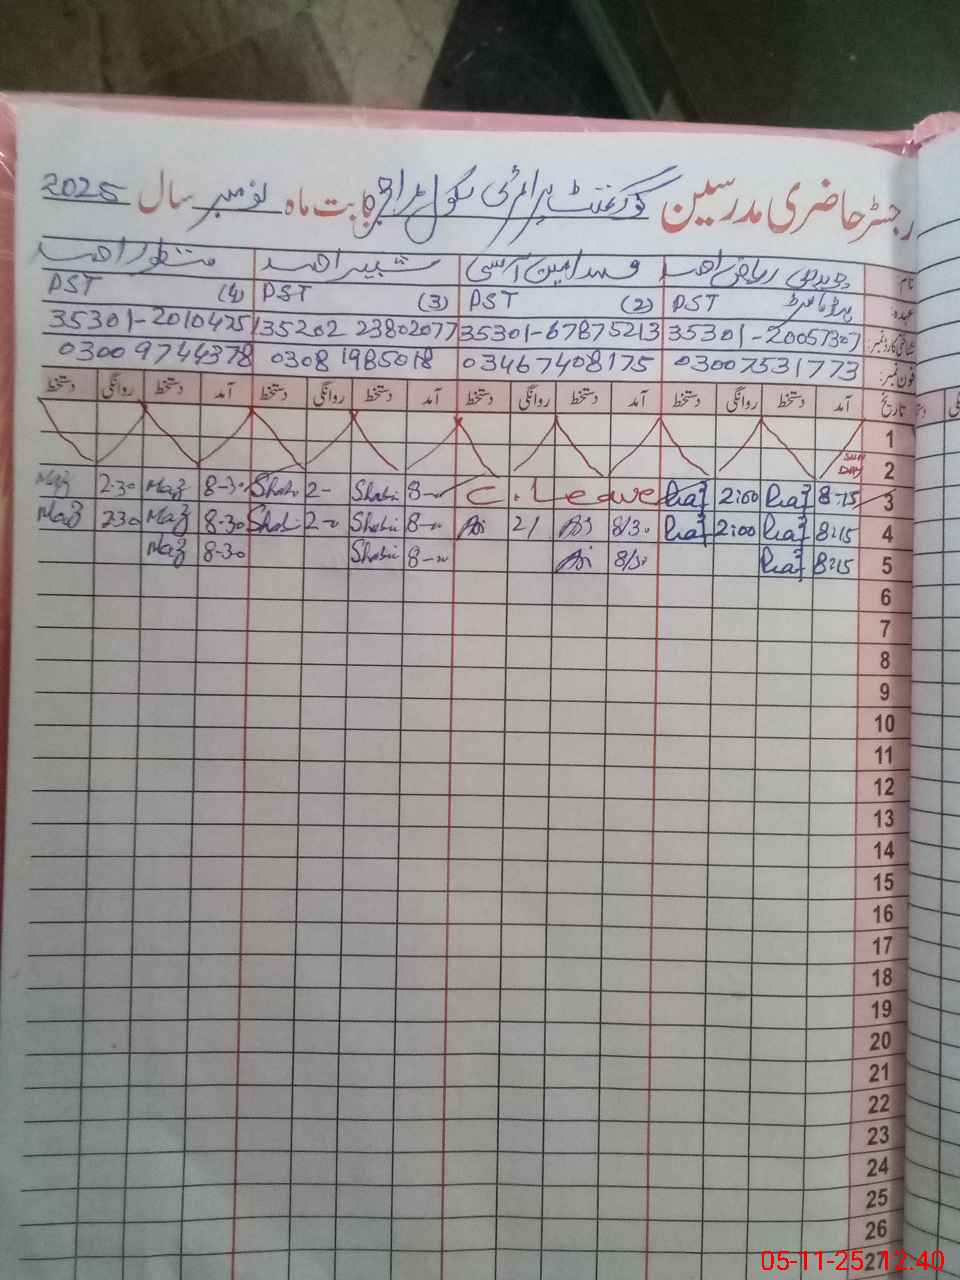 رجسٹر حاضری مدرسین گورنمنٹ پرائمری سکول بابت ماہ نومبر سال 2025
نام چوہدری ریاض احمد محمد امین آسی شبیر احمد منظور احمد
عہدہ PST (2) PST (3) PST (4) PST
شناختی کارڈ نمبر: 35301-20057307 35301-67875213 35202 23802077 35301-2010475
فون نمبر: 03007531773 03467408175 0308 1985018 0300 9744378
تاریخ آمد دستخط روانگی دستخط آمد دستخط روانگی دستخط آمد دستخط روانگی دستخط آمد دستخط روانگی دستخط
1
2 SUN DAY
3 8-15 Riaz 2:00 Riaz C. Leave 8-00 Shabir 2- Shabir 8-30 Maz 2-30 Maz
4 8:15 Riaz 2:00 Riaz 8/30 2/ 8-00 Shabir 2-00 Shabir 8-30 Maz 230 Maz
5 8:15 Riaz 8/30 8-00 Shabir 8-30 Maz
6
7
8
9
10
11
12
13
14
15
16
17
18
19
20
21
22
23
24
25
26
27
05-11-25 12:40